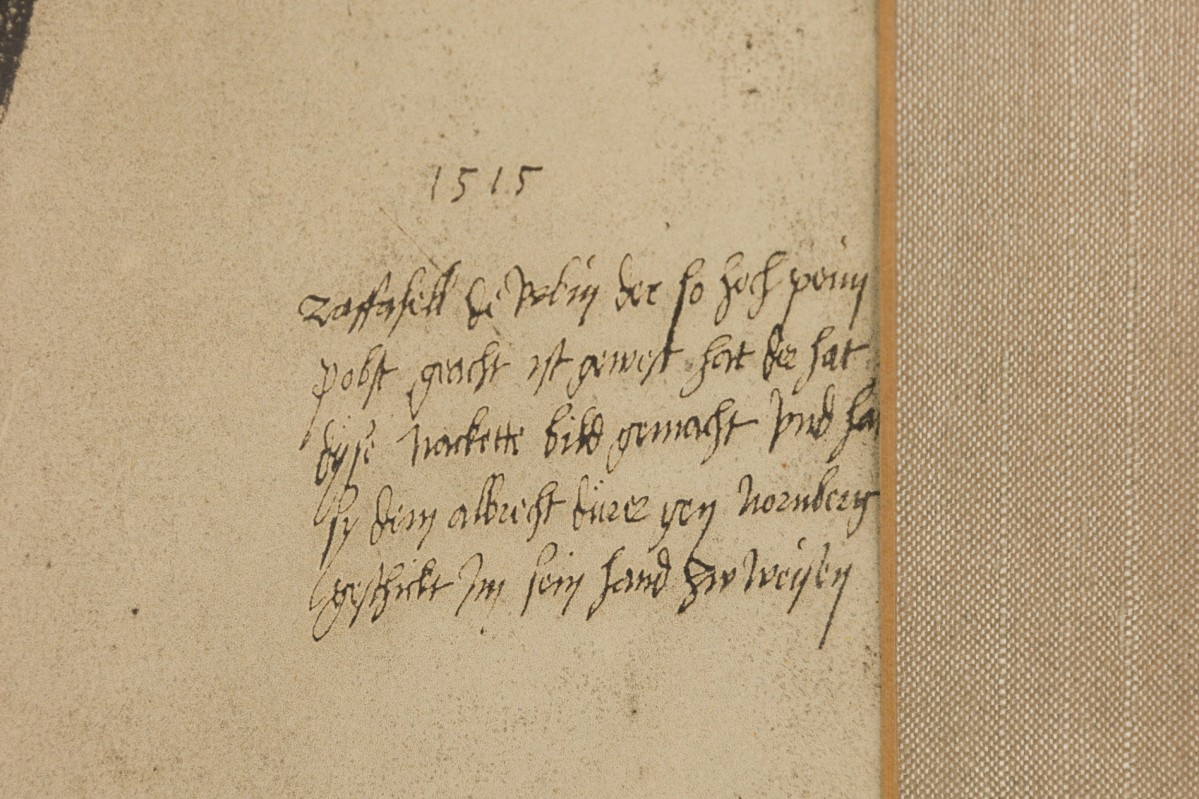 1515
Raffahell de Vrbin der so hoch peim
pobst geacht ist gewest hat der hat
dyse nackette bild gemacht vnd hat
sy dem albrecht dürer gen nornberg
geschickt Im sein hand zw weysen